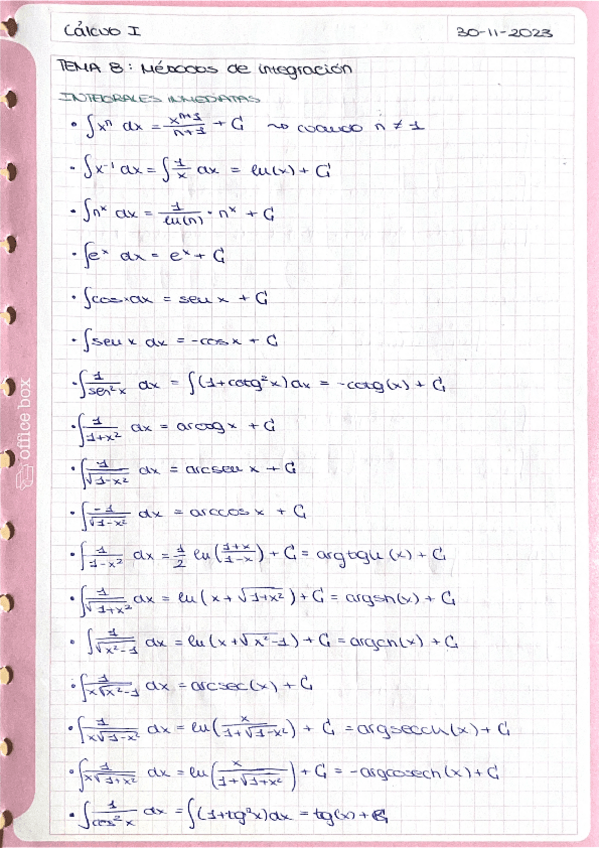 Cálculo I
30-11-2023
TEMA 8: Métodos de integración
INTEGRALES INMEDIATAS
• ∫xⁿ dx = xⁿ⁺¹/(n+1) + C ⇝ cuando n ≠ 1
• ∫x⁻¹ dx = ∫ 1/x dx = ln(x) + C
• ∫nˣ dx = 1/ln(n) · nˣ + C
• ∫eˣ dx = eˣ + C
• ∫cosx dx = sen x + C
• ∫sen x dx = -cos x + C
• ∫ 1/sen²x dx = ∫(1+cotg²x)dx = -cotg(x) + C
• ∫ 1/(1+x²) dx = arctg x + C
• ∫ 1/√(1-x²) dx = arcsen x + C
• ∫ -1/√(1-x²) dx = arccos x + C
• ∫ 1/(1-x²) dx = 1/2 ln((1+x)/(1-x)) + C = argtgh (x) + C
• ∫ 1/√(1+x²) dx = ln(x + √(1+x²)) + C = argsh(x) + C
• ∫ 1/√(x²-1) dx = ln(x+√(x²-1)) + C = argch(x) + C
• ∫ 1/(x√(x²-1)) dx = arcsec(x) + C
• ∫ 1/(x√(1-x²)) dx = ln(x/(1+√(1-x²))) + C = argsech(x) + C
• ∫ 1/(x√(1+x²)) dx = ln(x/(1+√(1+x²))) + C = -argcosech(x) + C
• ∫ 1/cos²x dx = ∫(1+tg²x)dx = tg(x) + C
office box